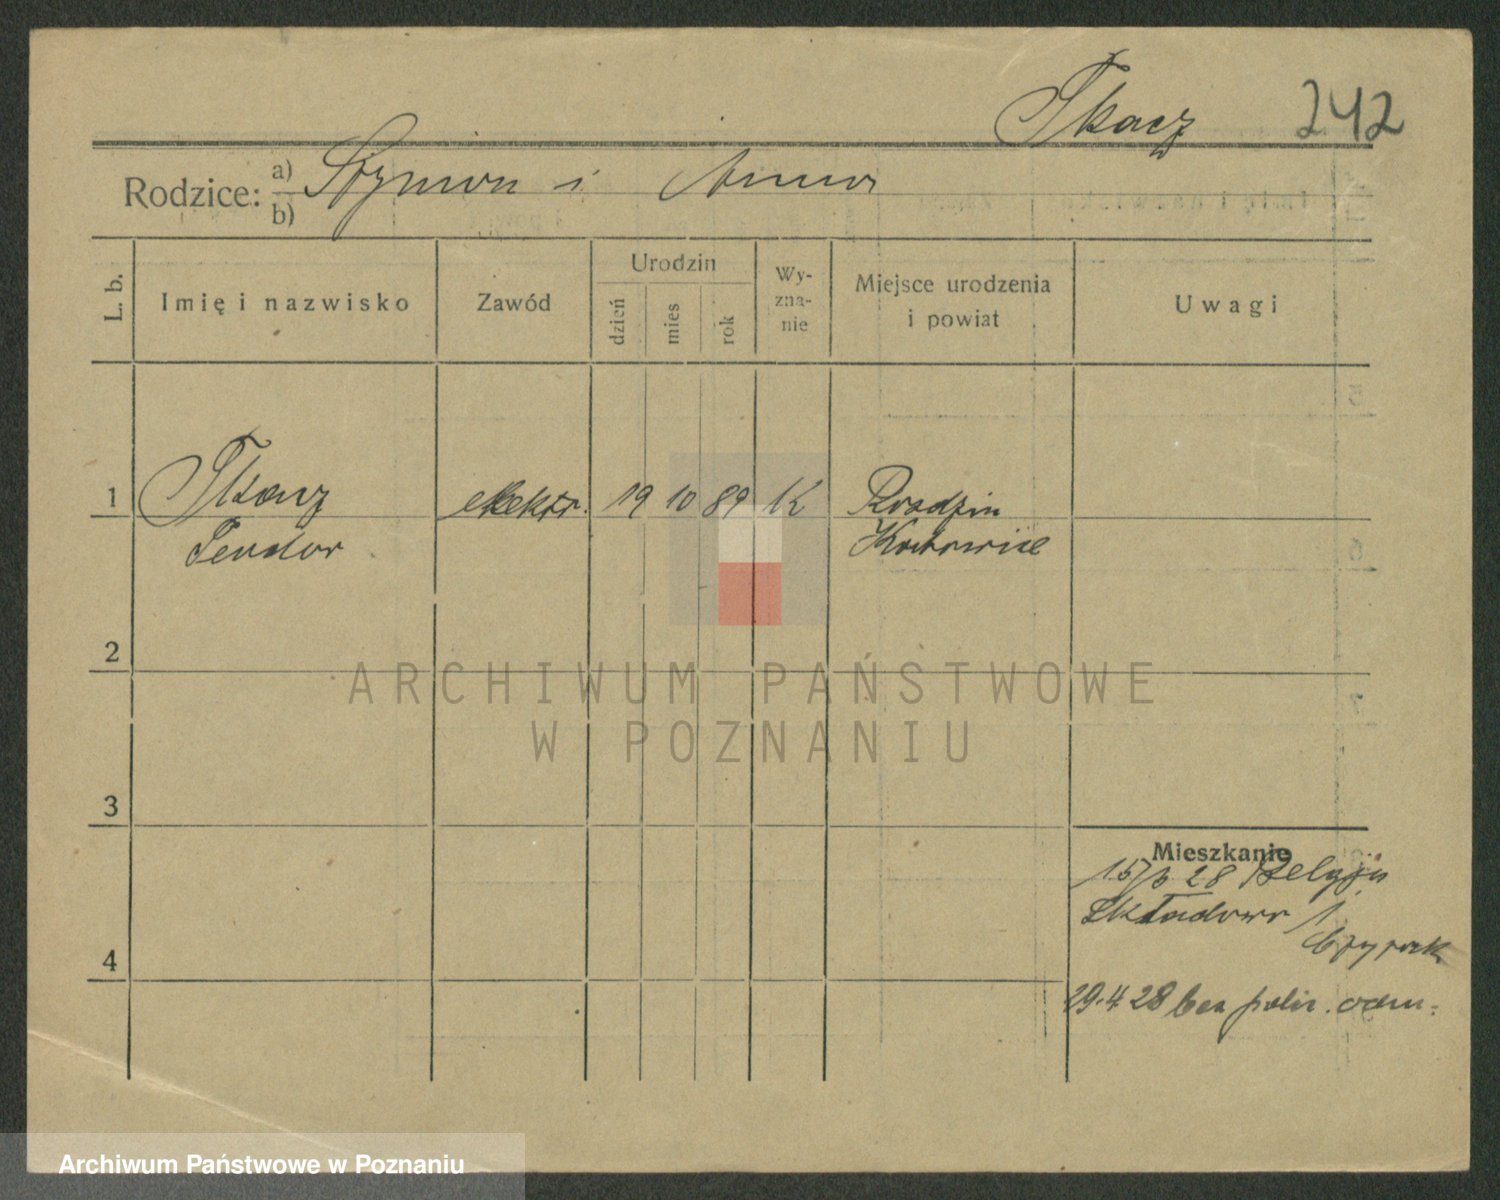 Tkacz 242
Rodzice: a) b) Szymon i Anna
L. b.
Imię i nazwisko
Zawód
Urodzin
dzień
mies
rok
Wy-
zna-
nie
Miejsce urodzenia
i powiat
Uwagi
1 Tkacz elektr. 19 10 89 K Rozdzin
Teodor Katowice
2
ARCHIWUM PAŃSTWOWE
W POZNANIU
3
Mieszkanie
28 Belgja
Składowa 1
4
29.4 28 bez polic. odm.
Archiwum Państwowe w Poznaniu